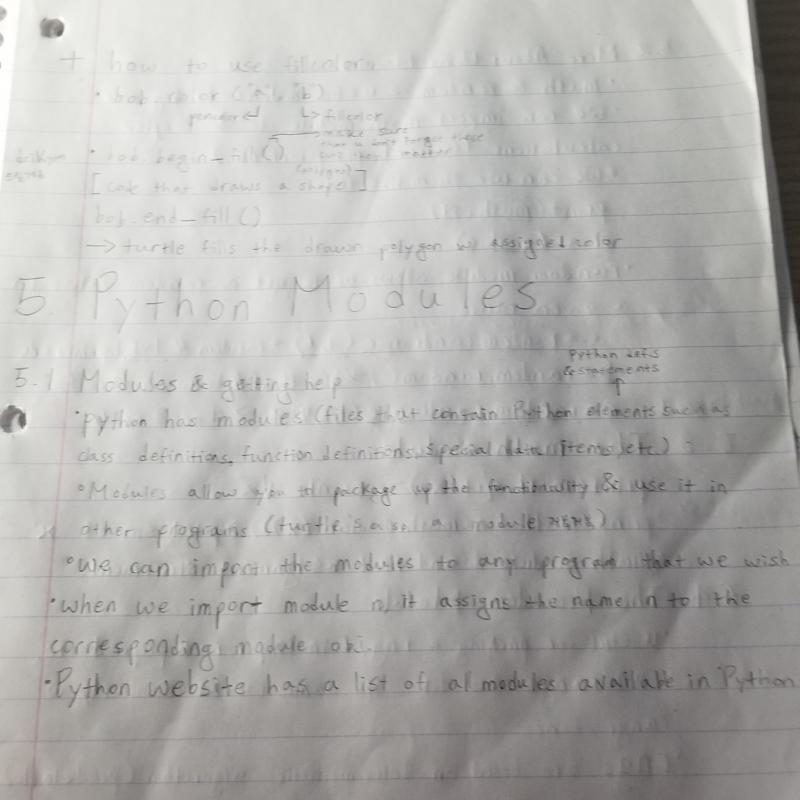 + how to use fillcolor
• bob.color ("a", "b")
pencolor fillcolor
make sure
that u don't forget these
• bob.begin_fill()
(polygons)
[code that draws a shape]
bob.end_fill()
→ turtle fills the drawn polygon w/ assigned color
5. Python Modules
Python defs
& statements
5.1 Modules & getting help
• python has modules (files that contain Python elements such as
class definitions, function definitions, special data items etc.)
• Modules allow you to package up the functionality & use it in
other programs (turtle is also a module ㅋㅋㅋㅋ)
• we can import the modules to any program that we wish
• when we import module n, it assigns the name n to the
corresponding module obj.
• Python website has a list of al modules available in Python